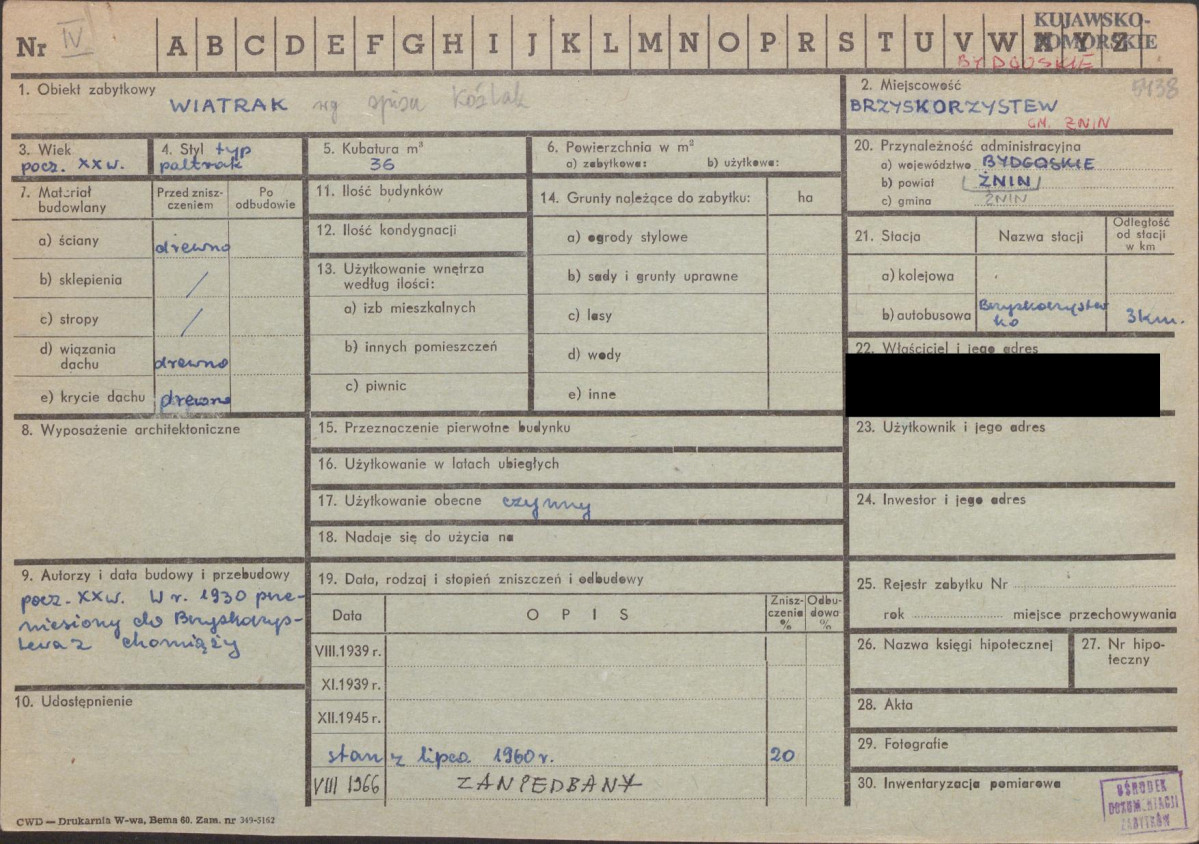 Nr IV A B C D E F G H I J K L M N O P R S T U V W X Y Z
KUJAWSKO-
POMORSKIE
BYDGOSKIE
1. Obiekt zabytkowy
WIATRAK wg spisu Koźlak
2. Miejscowość
5438
BRZYSKORZYSTEW
GN. ŻNIN
3. Wiek
pocz. XX w.
4. Styl typ
paltrak
5. Kubatura m³
36
6. Powierzchnia w m²
a) zabytkowa: b) użytkowa:
20. Przynależność administracyjna
a) województwo BYDGOSKIE
b) powiat ŻNIN
c) gmina ŻNIN
7. Materiał
budowlany
Przed znisz-
czeniem
Po
odbudowie
a) ściany drewno
b) sklepienia /
c) stropy /
d) wiązania
dachu drewno
e) krycie dachu drewno
11. Ilość budynków
12. Ilość kondygnacji
13. Użytkowanie wnętrza
według ilości:
a) izb mieszkalnych
b) innych pomieszczeń
c) piwnic
14. Grunty należące do zabytku: ha
a) ogrody stylowe
b) sady i grunty uprawne
c) lasy
d) wody
e) inne
21. Stacja Nazwa stacji
Odległość
od stacji
w km
a) kolejowa
b) autobusowa Brzyskorzystew
ko 3 km.
22. Właściciel i jego adres
8. Wyposażenie architektoniczne
15. Przeznaczenie pierwotne budynku
16. Użytkowanie w latach ubiegłych
17. Użytkowanie obecne czynny
18. Nadaje się do użycia na
23. Użytkownik i jego adres
24. Inwestor i jego adres
9. Autorzy i data budowy i przebudowy
pocz. XX w. W r. 1930 prze-
niesiony do Brzyskorzys-
tewa z Chomiąży
10. Udostępnienie
19. Data, rodzaj i stopień zniszczeń i odbudowy
Data OPIS
Znisz-
czenia
%
Odbu-
dowa
%
VIII.1939 r.
XI.1939 r.
XII.1945 r.
stan z lipca 1960 r. 20
VIII 1966 ZANIEDBANY
25. Rejestr zabytku Nr
rok miejsce przechowywania
26. Nazwa księgi hipotecznej
27. Nr hipo-
teczny
28. Akta
29. Fotografie
30. Inwentaryzacja pomiarowa
OŚRODEK
DOKUMENTACJI
ZABYTKÓW
CWD — Drukarnia W-wa, Bema 60. Zam. nr 349-5162